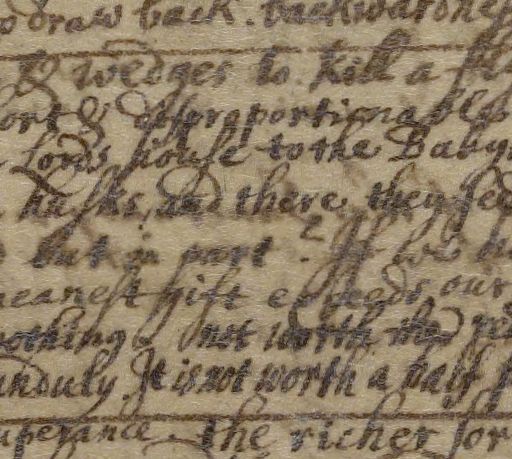 draw back. backwardnes
& wedges to kill a
disproportionable
Lords house to the Baby
husks, and there they fed
but in part? If we
meanest gift exceeds our
nothing & not worth the
unduly. It is not worth a half p
uperance. The richer for